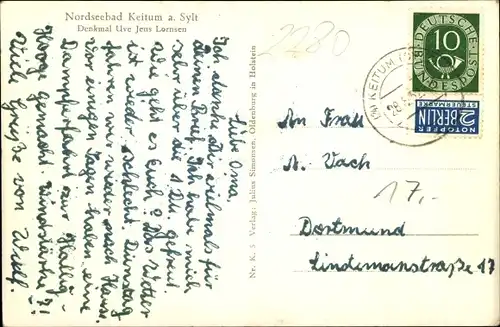 Nordseebad Keitum a. Sylt
Denkmal Uwe Jens Lornsen
2280
Liebe Oma,
Ich danke dir vielmals für
deinen Brief. Ich habe mich
sehr über die 1 DM gefreut
Wie geht es Euch? Das Wetter
ist wieder schlecht. Dienstag
fahren wir wieder nach Hause.
Vor einigen Tagen haben eine
Dampferfahrt zur Hallig-
Hooge gemacht. Windstärke 7!
Viele Grüße von
Nr. K. 5 Verlag: Julius Simonsen, Oldenburg in Holstein
DEUTSCHE
BUNDESPOST
10
KEITUM
NOTOPFER
2 BERLIN
STEUERMARKE
An Frau
A. Vach
17,-
Dortmund
Lindemannstraße 17